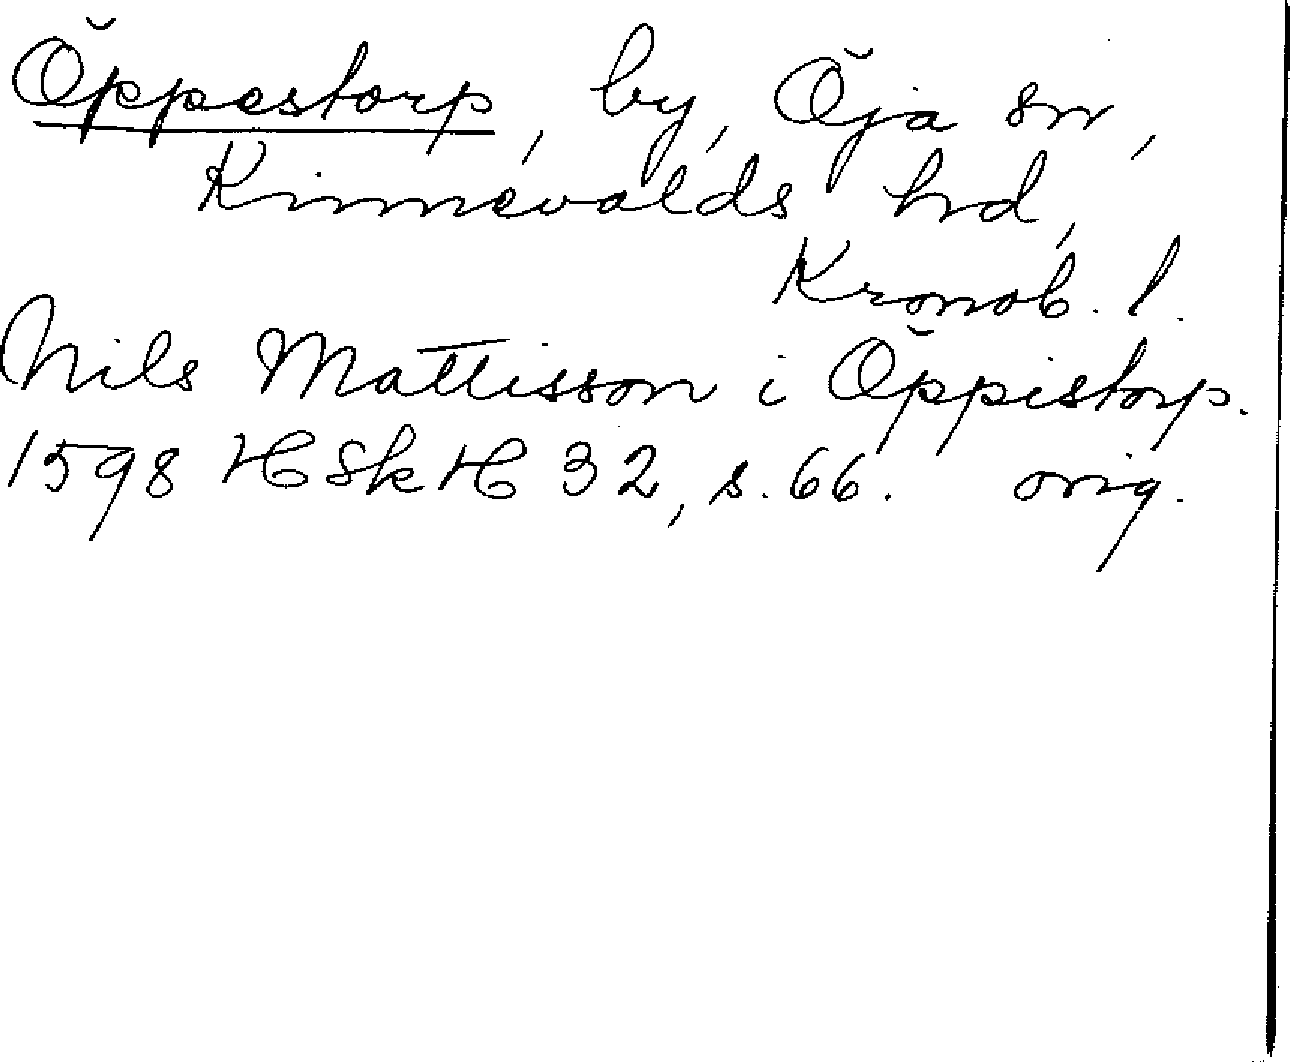 Öppestorp, by, Öja sn,
Kinnevalds hd,
Kronob. l.
Nils Mattisson i Öppistorp.
1598 HSkH 32, s. 66. orig.